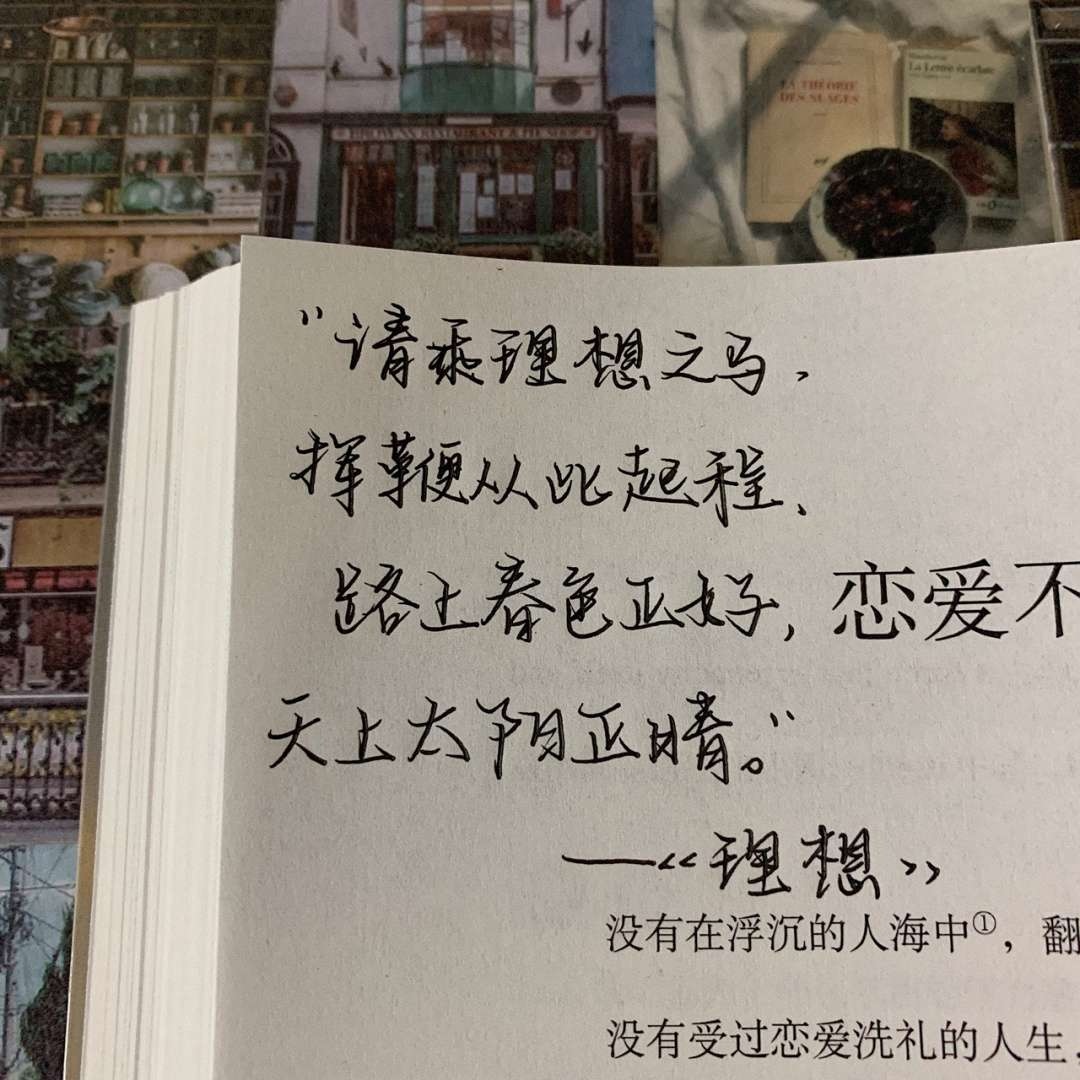 LA THÉORIE
DES NUAGES
La Lettre écarlate
"请乘理想之马，
挥鞭从此起程，
路上春色正好，
天上太阳正晴。"
——《理想》
恋爱不
没有在浮沉的人海中①，翻
没有受过恋爱洗礼的人生，